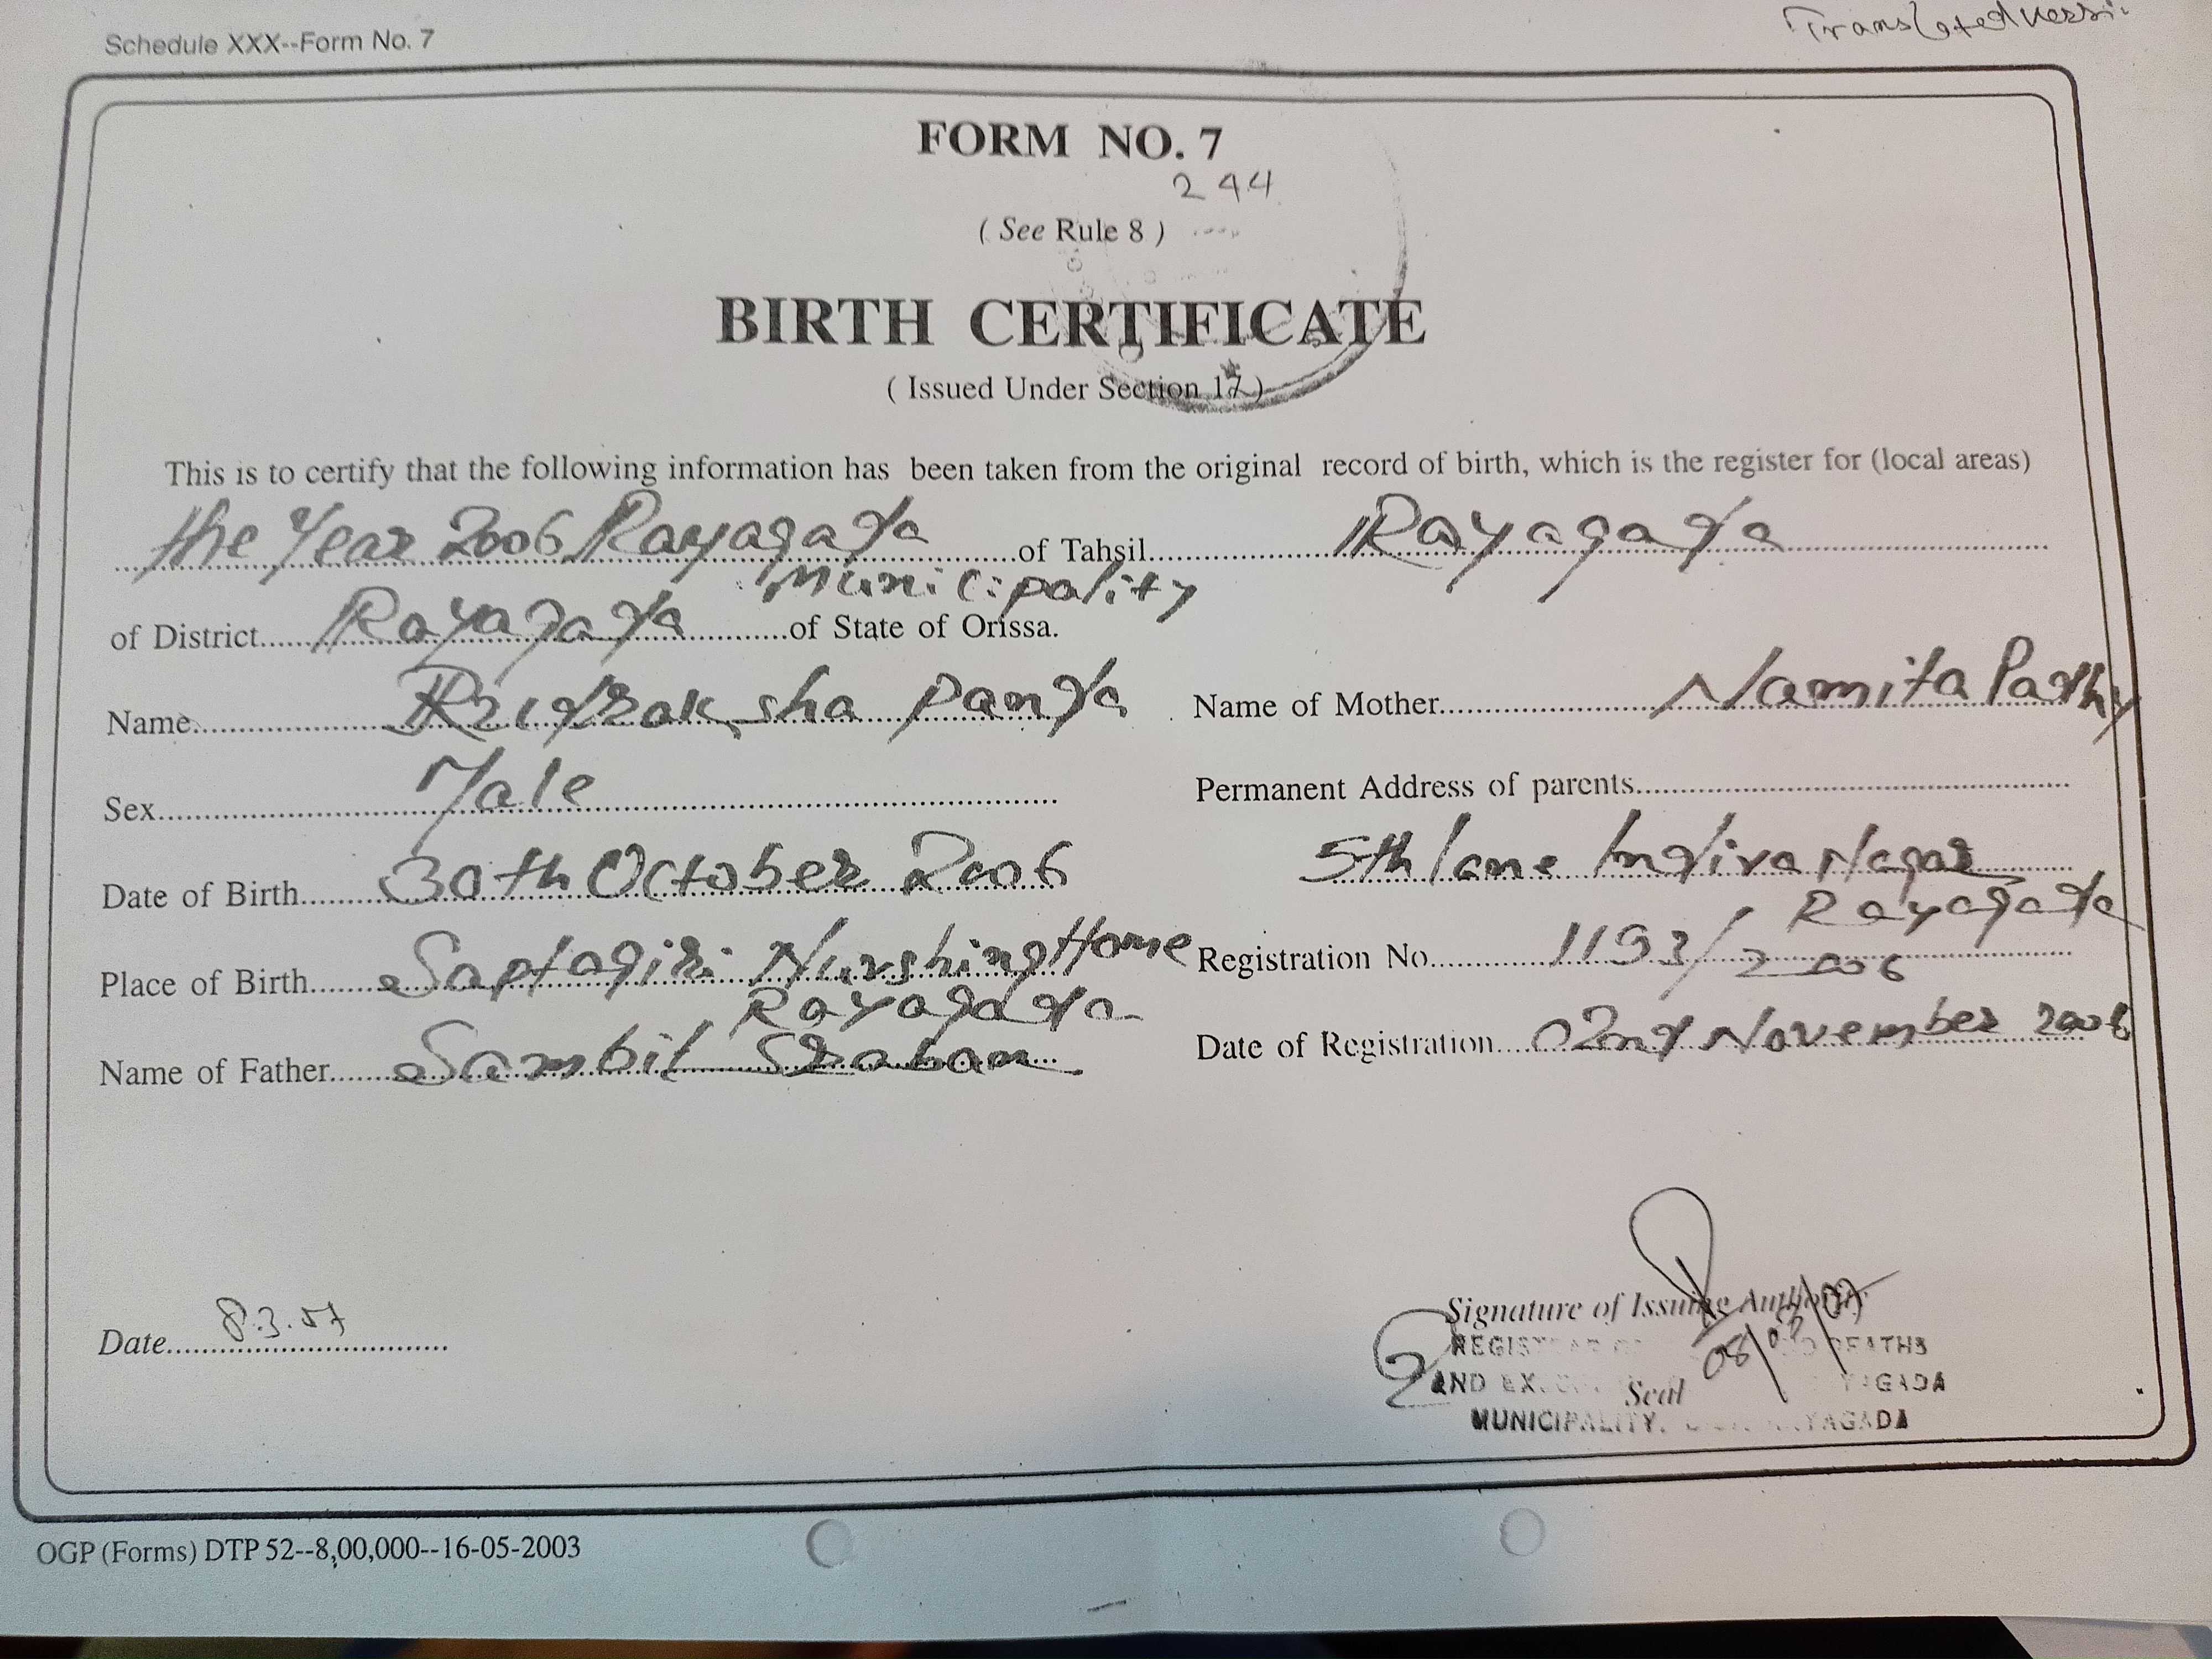 Schedule XXX--Form No. 7
FORM NO. 7
244
( See Rule 8 )
BIRTH CERTIFICATE
( Issued Under Section 17 )
This is to certify that the following information has been taken from the original record of birth, which is the register for (local areas)
the Year 2006 Rayagada of Tahsil Rayagada
Municipality
of District Rayagada of State of Orissa.
Name Rudraksha Panda Name of Mother Namita Padhy
Sex Male Permanent Address of parents
5th lane Indira Nagar
Date of Birth 30th October 2006
Rayagada
Place of Birth Saptagiri Nurshing Home Registration No. 1193/2006
Rayagada
Name of Father Sambit Sraban Date of Registration 02nd November 2006
Date 8.3.07
Signature of Issuing Authority
08/03/07
DEATHS
AND Seal
MUNICIPALITY, RAYAGADA
OGP (Forms) DTP 52--8,00,000--16-05-2003